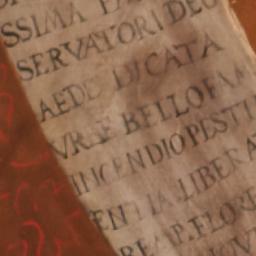 SSIMA
SERVATORI DEO
AEDE DICATA
VRBE BELLO FAM
INCENDIO PESTI
ENTIA LIBERA
FLORE